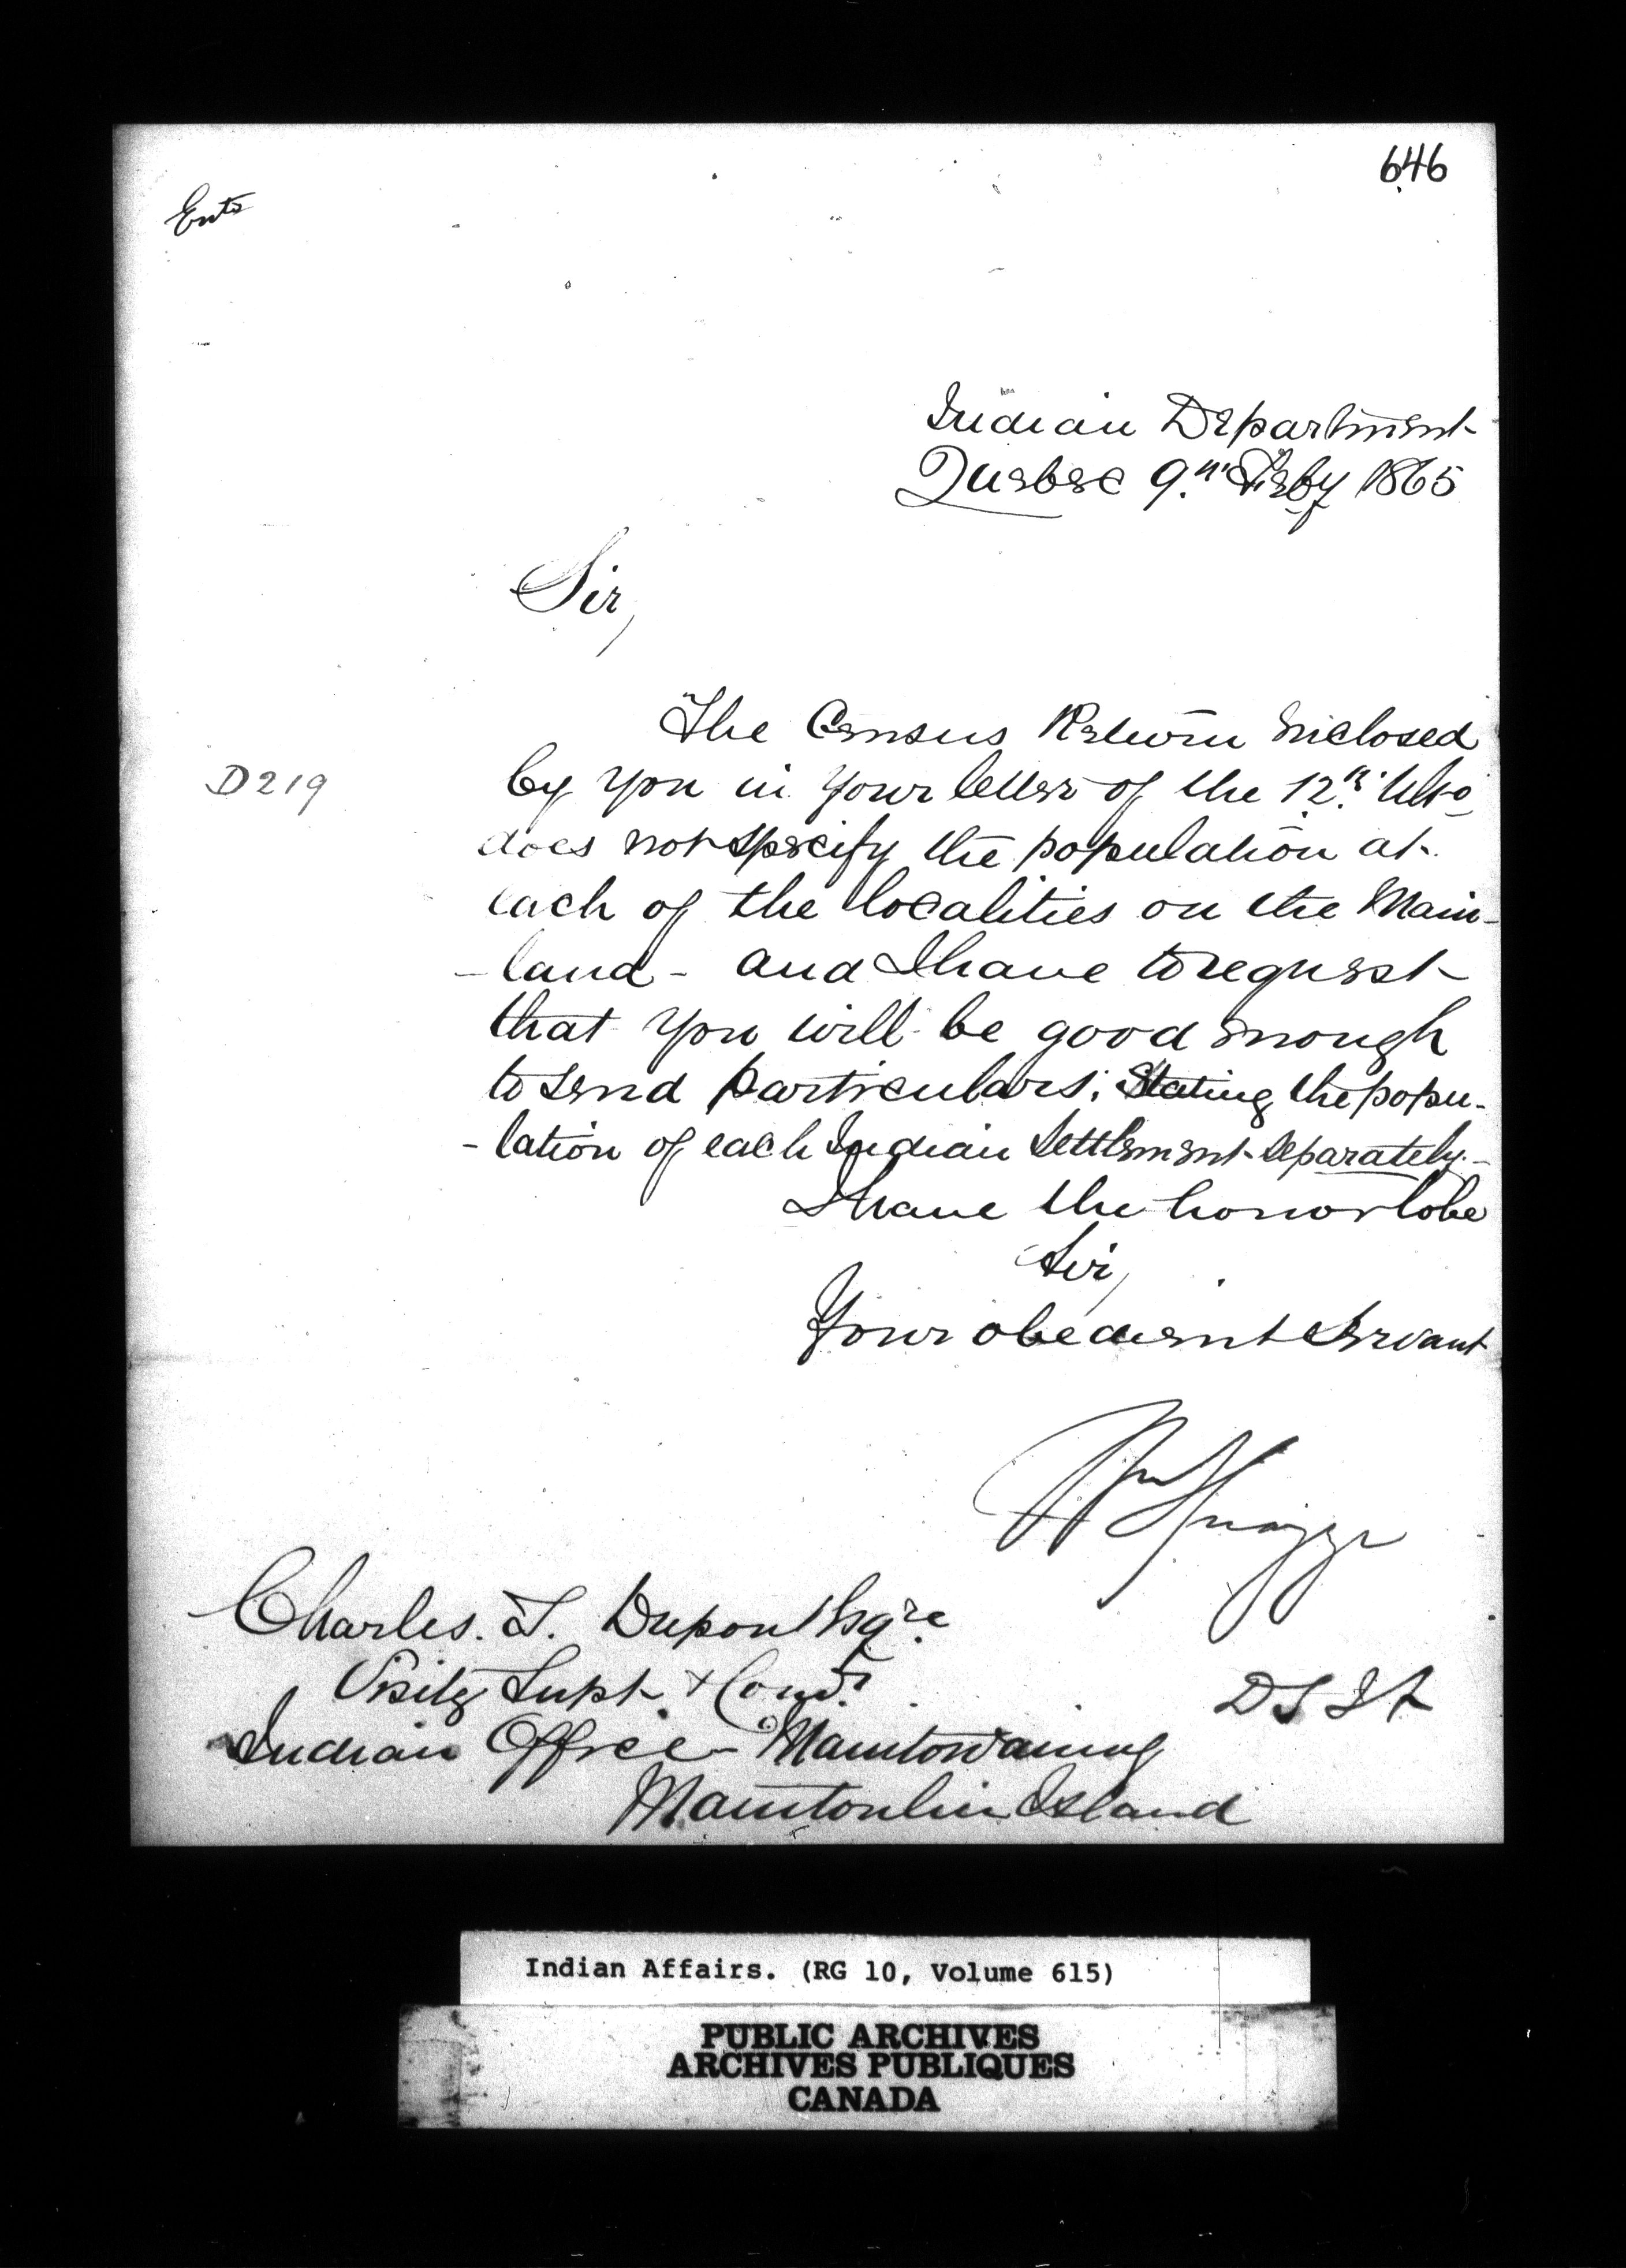 646
Entd
Indian Department
Quebec 9.th Feby 1865
Sir,
The Census Return enclosed
D219
by you in your letter of the 12.th Ulto
does not specify the population at
each of the localities on the Main-
-land - and I have to request
that you will be good enough
to send particulars; Stating the popu-
-lation of each Indian Settlement separately.-
I have the honor to be
Sir,
Your obedient servant
Wm Spragge
Charles. T. Dupont Esqre
Visitg Supt. & Comr.
D S I A
Indian Office - Manitowaning
Manitoulin Island
Indian Affairs. (RG 10, Volume 615)
PUBLIC ARCHIVES
ARCHIVES PUBLIQUES
CANADA